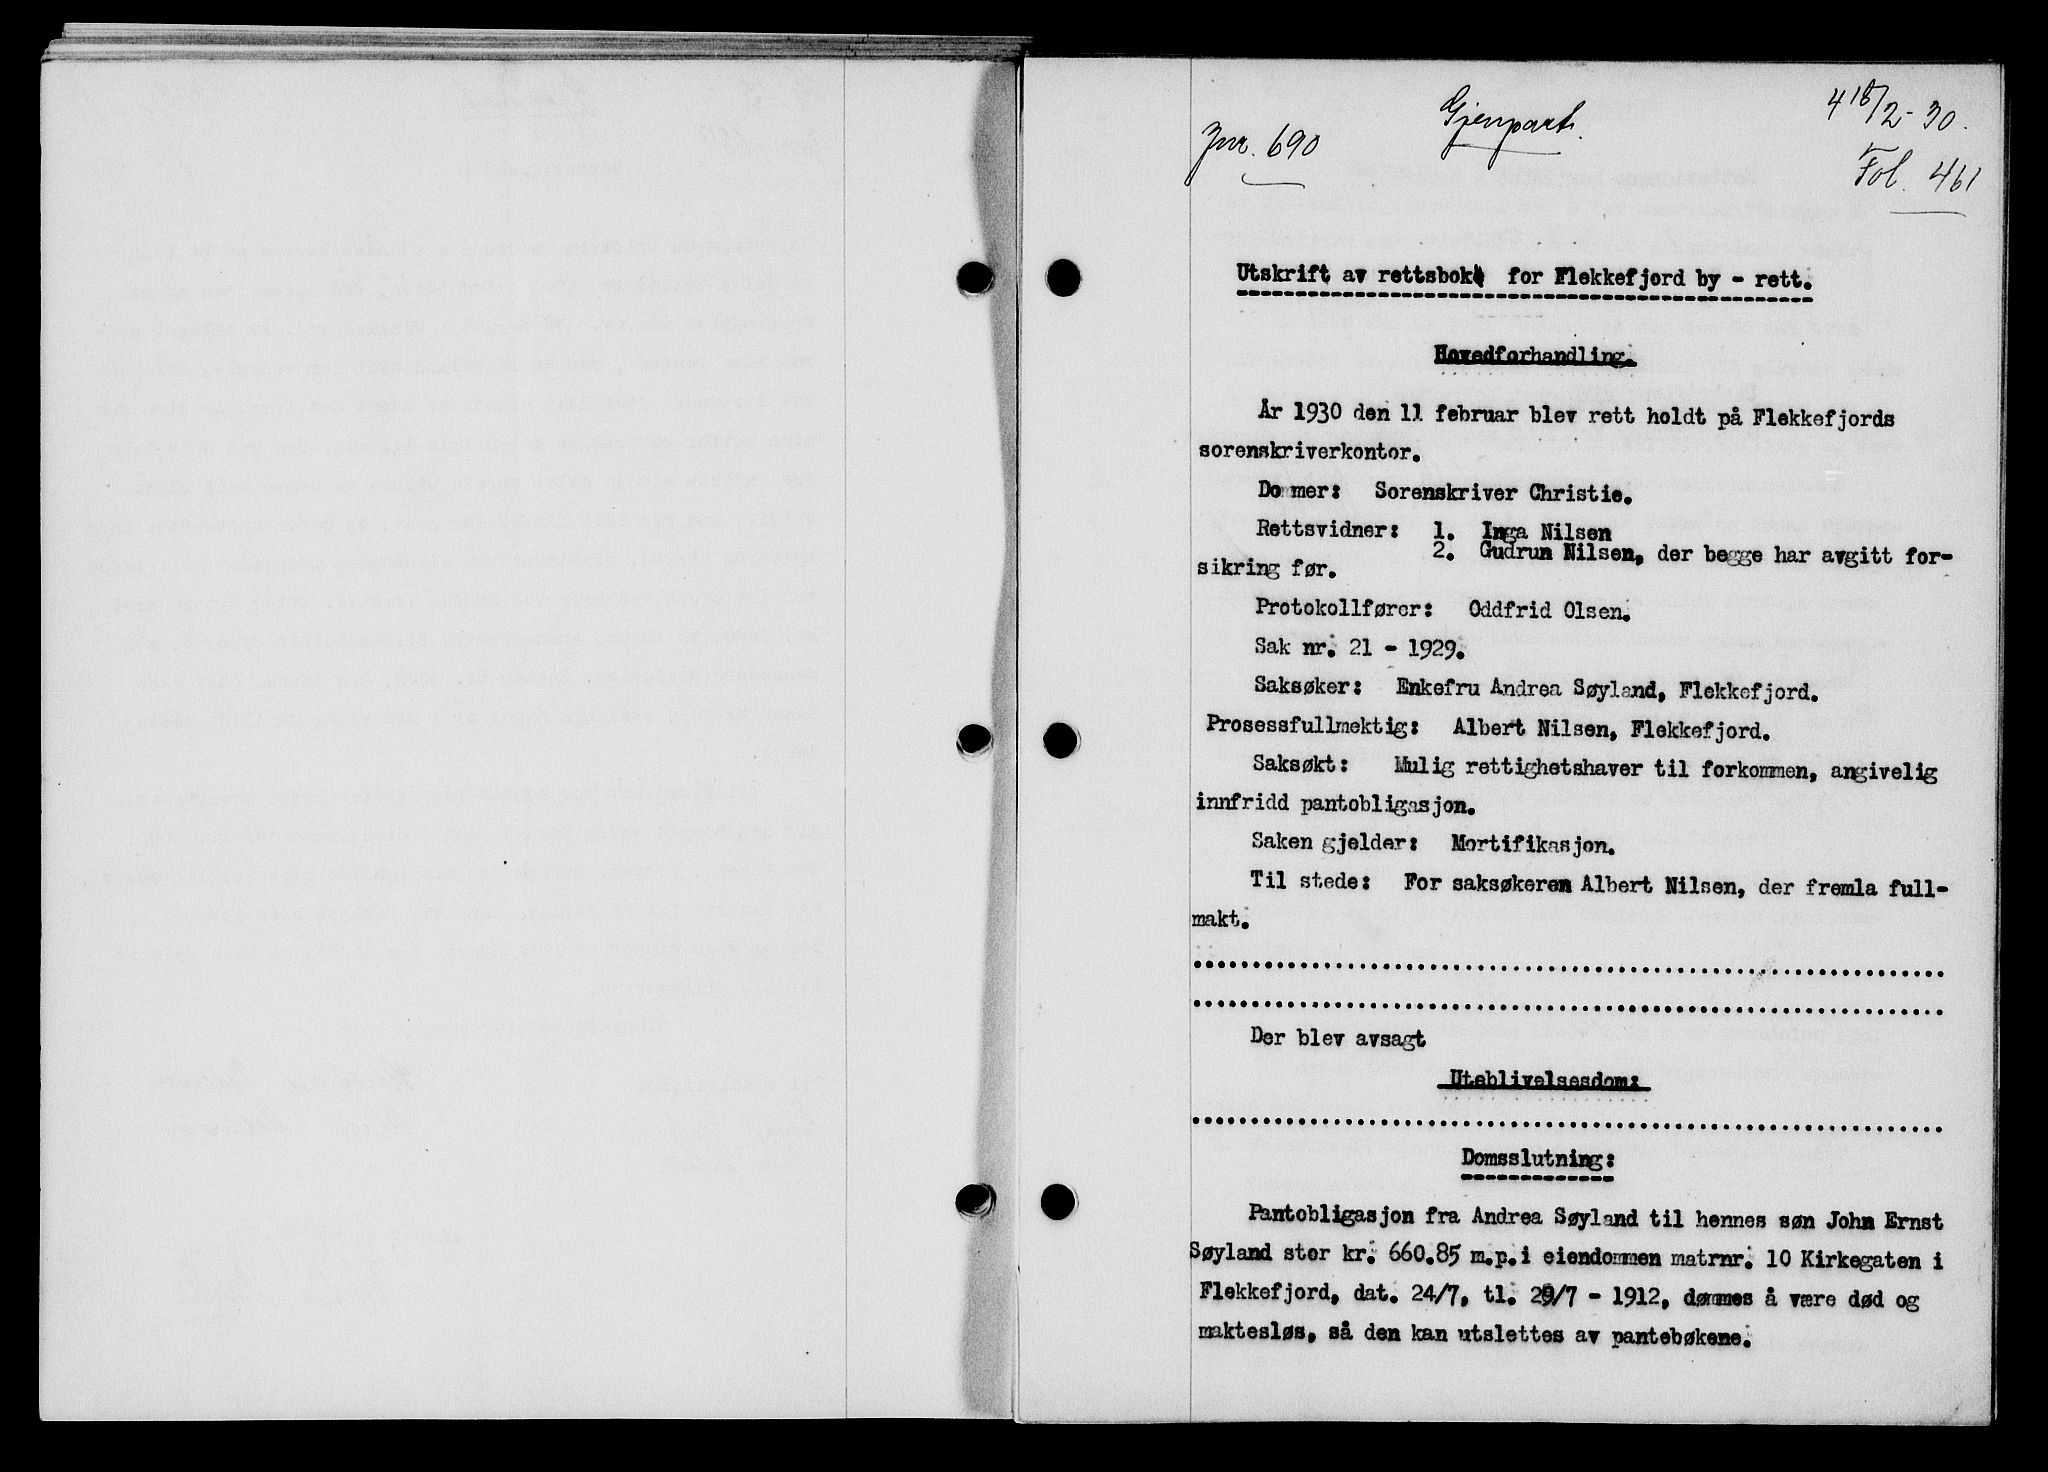 Jnr. 690
Gjenpart.
4 18/2-30.
Fol. 461
Utskrift av rettsbok for Flekkefjord by - rett.
Hovedforhandling.
År 1930 den 11 februar blev rett holdt på Flekkefjords
sorenskriverkontor.
Dommer: Sorenskriver Christie.
Rettsvidner: 1. Inga Nilsen
2. Gudrun Nilsen, der begge har avgitt for-
sikring før.
Protokollfører: Oddfrid Olsen.
Sak nr. 21 - 1929.
Saksøker: Enkefru Andrea Søyland, Flekkefjord.
Prosessfullmektig: Albert Nilsen, Flekkefjord.
Saksøkt: Mulig rettighetshaver til forkommen, angivelig
innfridd pantobligasjon.
Saken gjelder: Mortifikasjon.
Til stede: For saksøkeren Albert Nilsen, der fremla full-
makt.
Der blev avsagt
Uteblivelsesdom:
Domsslutning:
Pantobligasjon fra Andrea Søyland til hennes søn John Ernst
Søyland stor kr. 660.85 m.p. i eiendommen matrnr. 10 Kirkegaten i
Flekkefjord, dat. 24/7, tl. 29/7 - 1912, dømmes å være død og
maktesløs, så den kan utslettes av pantebøkene.